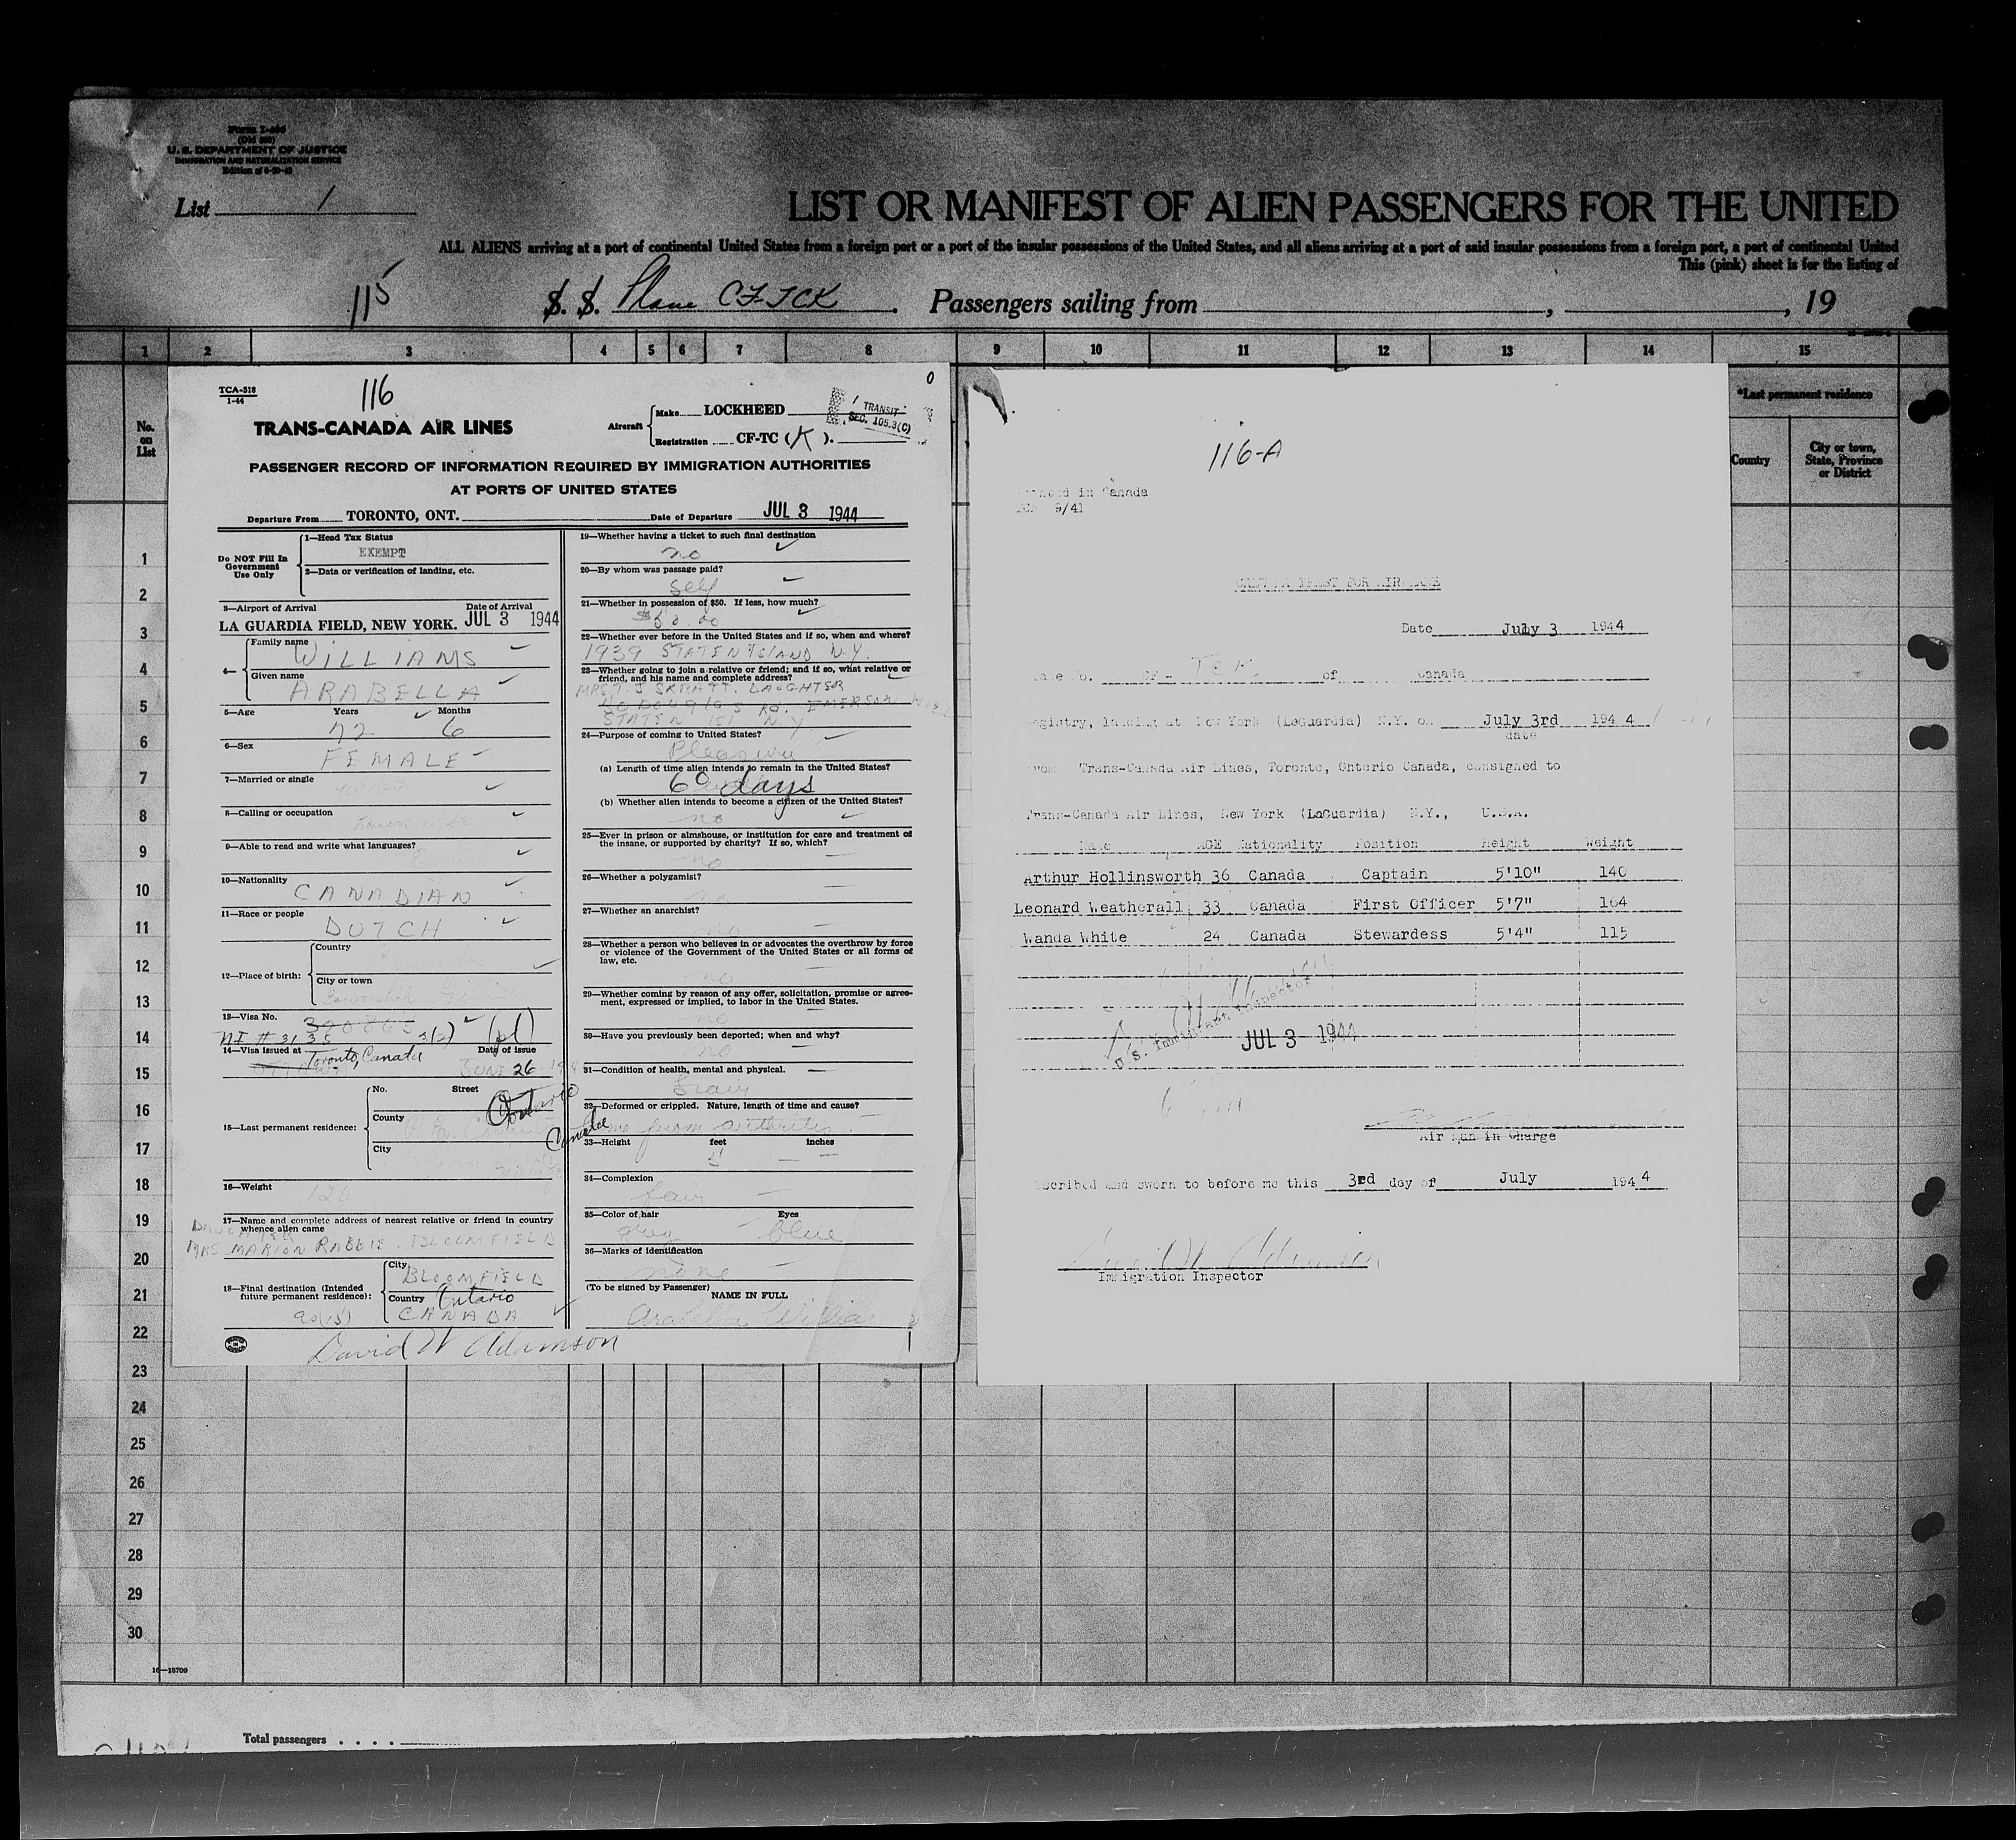 Form I-466
(Old 500)
U. S. DEPARTMENT OF JUSTICE
IMMIGRATION AND NATURALIZATION SERVICE
List 1
LIST OR MANIFEST OF ALIEN PASSENGERS FOR THE UNITED
ALL ALIENS arriving at a port of continental United States from a foreign port or a port of the insular possessions of the United States, and all aliens arriving at a port of said insular possessions from a foreign port, a port of continental United
This (pink) sheet is for the listing of
115
S. S. Plane CFTCK. Passengers sailing from , , 19
1 2 3 4 5 6 7 8 9 10 11 12 13 14 15
No. on List
*Last permanent residence
Country
City or town, State, Province or District
TCA-518
1-44
116
0
TRANS-CANADA AIR LINES
Aircraft
Make LOCKHEED
Registration CF-TC (K).
TRANSIT
SEC. 105.3(C)
PASSENGER RECORD OF INFORMATION REQUIRED BY IMMIGRATION AUTHORITIES
AT PORTS OF UNITED STATES
Departure From TORONTO, ONT. Date of Departure JUL 3 1944
Do NOT Fill In Government Use Only
1—Head Tax Status
EXEMPT
2—Data or verification of landing, etc.
3—Airport of Arrival Date of Arrival
LA GUARDIA FIELD, NEW YORK. JUL 3 1944
4—
Family name
WILLIAMS
Given name
ARABELLA
5—Age Years Months
72 6
6—Sex
FEMALE
7—Married or single
8—Calling or occupation
9—Able to read and write what languages?
10—Nationality
CANADIAN
11—Race or people
DUTCH
12—Place of birth:
Country
City or town
13—Visa No.
NI # 3135 3(2)
14—Visa issued at Date of issue
Toronto, Canada JUNE 26
15—Last permanent residence:
No. Street
County
City
Ontario
Canada
16—Weight
120
17—Name and complete address of nearest relative or friend in country whence alien came
DAUGHTER
MRS MARION RABBIE. BLOOMFIELD
18—Final destination (Intended future permanent residence):
City
BLOOMFIELD
Country Ontario
CANADA
David W Adamson
19—Whether having a ticket to such final destination
no
20—By whom was passage paid?
self
21—Whether in possession of $50. If less, how much?
22—Whether ever before in the United States and if so, when and where?
1939 STATEN ISLAND N.Y.
23—Whether going to join a relative or friend; and if so, what relative or friend, and his name and complete address?
DAUGHTER
DOUGLAS RD. EMERSON
STATEN ISL. N.Y
24—Purpose of coming to United States?
Pleasure
(a) Length of time alien intends to remain in the United States?
60 days
(b) Whether alien intends to become a citizen of the United States?
no
25—Ever in prison or almshouse, or institution for care and treatment of the insane, or supported by charity? If so, which?
no
26—Whether a polygamist?
no
27—Whether an anarchist?
no
28—Whether a person who believes in or advocates the overthrow by force or violence of the Government of the United States or all forms of law, etc.
no
29—Whether coming by reason of any offer, solicitation, promise or agreement, expressed or implied, to labor in the United States.
no
30—Have you previously been deported; when and why?
no
31—Condition of health, mental and physical.
32—Deformed or crippled. Nature, length of time and cause?
from arthritis
33—Height feet inches
5
34—Complexion
fair
35—Color of hair Eyes
grey blue
36—Marks of identification
none
(To be signed by Passenger)
NAME IN FULL
Arabella Williams
116-A
in Canada
9/41
Date July 3 1944
TCK of Canada
registry, landing at New York (LaGuardia) N.Y. on July 3rd 1944
date
From Trans-Canada Air Lines, Toronto, Onterio Canada, consigned to
Trans-Canada Air Lines, New York (LaGuardia) N.Y., U.S.A.
Name AGE Nationality Position Height Weight
Arthur Hollinsworth 36 Canada Captain 5'10" 140
Leonard Weatherall 33 Canada First Officer 5'7" 164
Wanda White 24 Canada Stewardess 5'4" 115
U.S. Immigrant Inspector
JUL 3 1944
Air Man in Charge
scribed and sworn to before me this 3rd day of July 1944
Immigration Inspector
1
2
3
4
5
6
7
8
9
10
11
12
13
14
15
16
17
18
19
20
21
22
23
24
25
26
27
28
29
30
16—18709
Total passengers . . . .